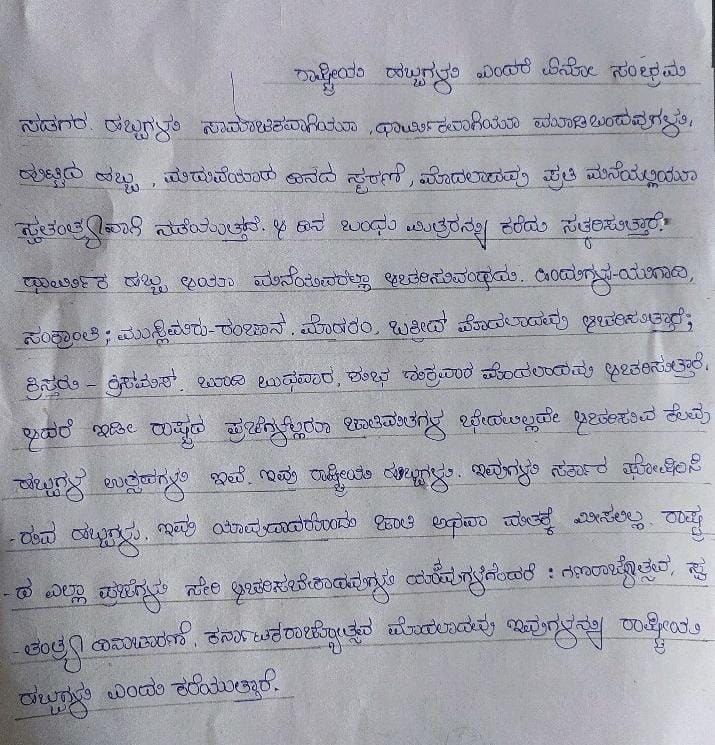 ರಾಷ್ಟ್ರೀಯ ಹಬ್ಬಗಳು ಎಂದರೆ ಏನೋ ಸಂಭ್ರಮ
ಸಡಗರ. ಹಬ್ಬಗಳು ಸಾಮಾಜಿಕವಾಗಿಯೂ, ಧಾರ್ಮಿಕವಾಗಿಯೂ ಮೂಡಿಬಂದವುಗಳು.
ಹುಟ್ಟಿದ ಹಬ್ಬ, ಮದುವೆಯಾದ ದಿನದ ಸ್ಮರಣೆ, ಮೊದಲಾದವು ಪ್ರತಿ ಮನೆಯಲ್ಲಿಯೂ
ಸ್ವತಂತ್ರ್ಯವಾಗಿ ನಡೆಯುತ್ತದೆ. ಆ ದಿನ ಬಂಧು ಮಿತ್ರರನ್ನು ಕರೆದು ಸತ್ಕರಿಸುತ್ತಾರೆ.
ಧಾರ್ಮಿಕ ಹಬ್ಬ ಆಯಾ ಮನೆಯವರೆಲ್ಲಾ ಆಚರಿಸುವಂಥಹದು. ಹಿಂದುಗಳು-ಯುಗಾದಿ,
ಸಂಕ್ರಾಂತಿ; ಮುಸ್ಲಿಮರು-ರಂಜಾನ್. ಮೊಹರಂ. ಬಕ್ರೀದ್ ಮೊದಲಾದವು ಆಚರಿಸುತ್ತಾರೆ;
ಕ್ರಿಸ್ತರು - ಕ್ರಿಸಮಸ್. ಬೂದಿ ಬುಧವಾರ, ಶುಭ ಶುಕ್ರವಾರ ಮೊದಲಾದವು ಆಚರಿಸುತ್ತಾರೆ.
ಆದರೆ ಇಡೀ ರಾಷ್ಟ್ರದ ಪ್ರಜೆಗಳೆಲ್ಲರೂ ಜಾತಿಮತಗಳ ಭೇದವಿಲ್ಲದೇ ಆಚರಿಸುವ ಕೆಲವು
ಹಬ್ಬಗಳ ಉತ್ಸವಗಳು ಇವೆ. ಇವು ರಾಷ್ಟ್ರೀಯ ಹಬ್ಬಗಳು. ಇವುಗಳು ಸರ್ಕಾರ ಘೋಷಿಸಿ
-ರುವ ಹಬ್ಬಗಳು. ಇವು ಯಾವುದಾದರೊಂದು ಜಾತಿ ಅಥವಾ ಮತಕ್ಕೆ ಮೀಸಲಿಲ್ಲ. ರಾಷ್ಟ್ರ
-ದ ಎಲ್ಲಾ ಪ್ರಜೆಗಳು ಸೇರಿ ಆಚರಿಸಬೇಕಾದವುಗಳು ಯಾವುವುಗಳೆಂದರೆ : ಗಣರಾಜ್ಯೋತ್ಸವ, ಸ್ವ
-ತಂತ್ರ್ಯ ದಿನಾಚಾರಣೆ, ಕರ್ನಾಟಕರಾಜ್ಯೋತ್ಸವ ಮೊದಲಾದವು ಇವುಗಳನ್ನು ರಾಷ್ಟ್ರೀಯ
ಹಬ್ಬಗಳು ಎಂದು ಕರೆಯುತ್ತಾರೆ.